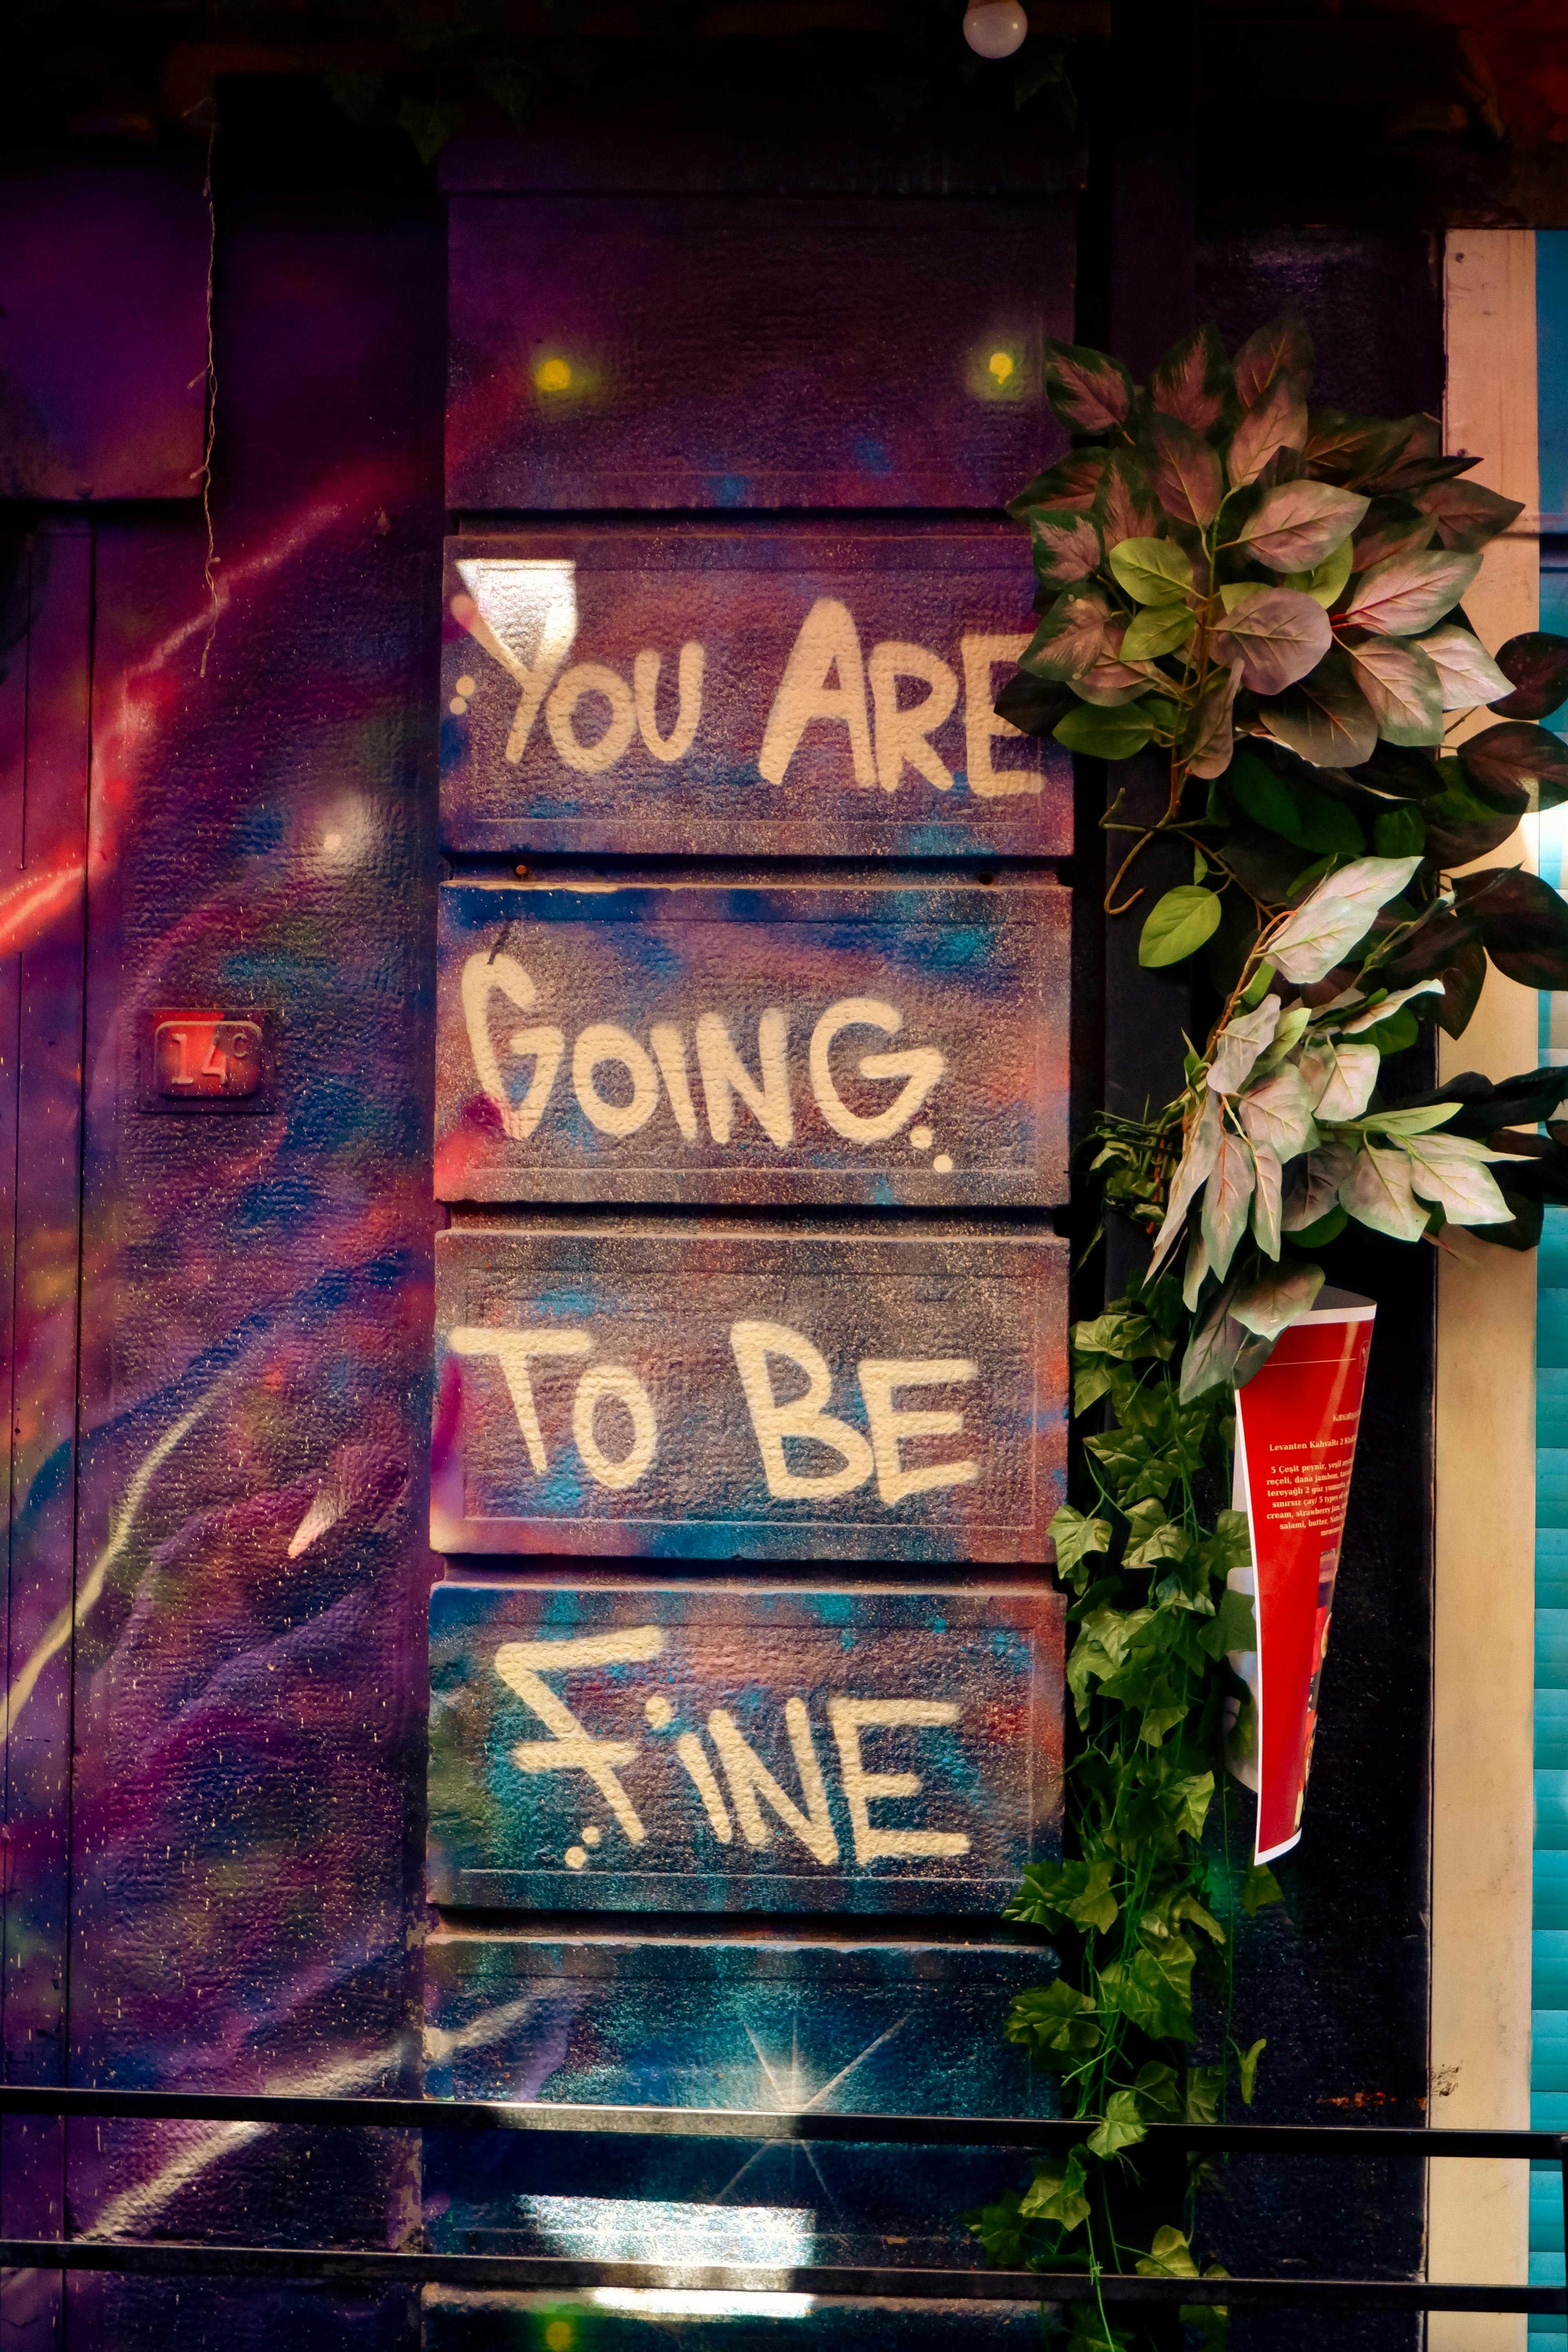 YOU ARE
GOING
TO BE
FiNE
14C
Levanten Kahvaltı 2
5 Çeşit peynir, yeşil
reçeli, dana jambon,
tereyağlı 2 göz
sınırsız çay; 5 types
cream, strawberry jam,
salami, butter,